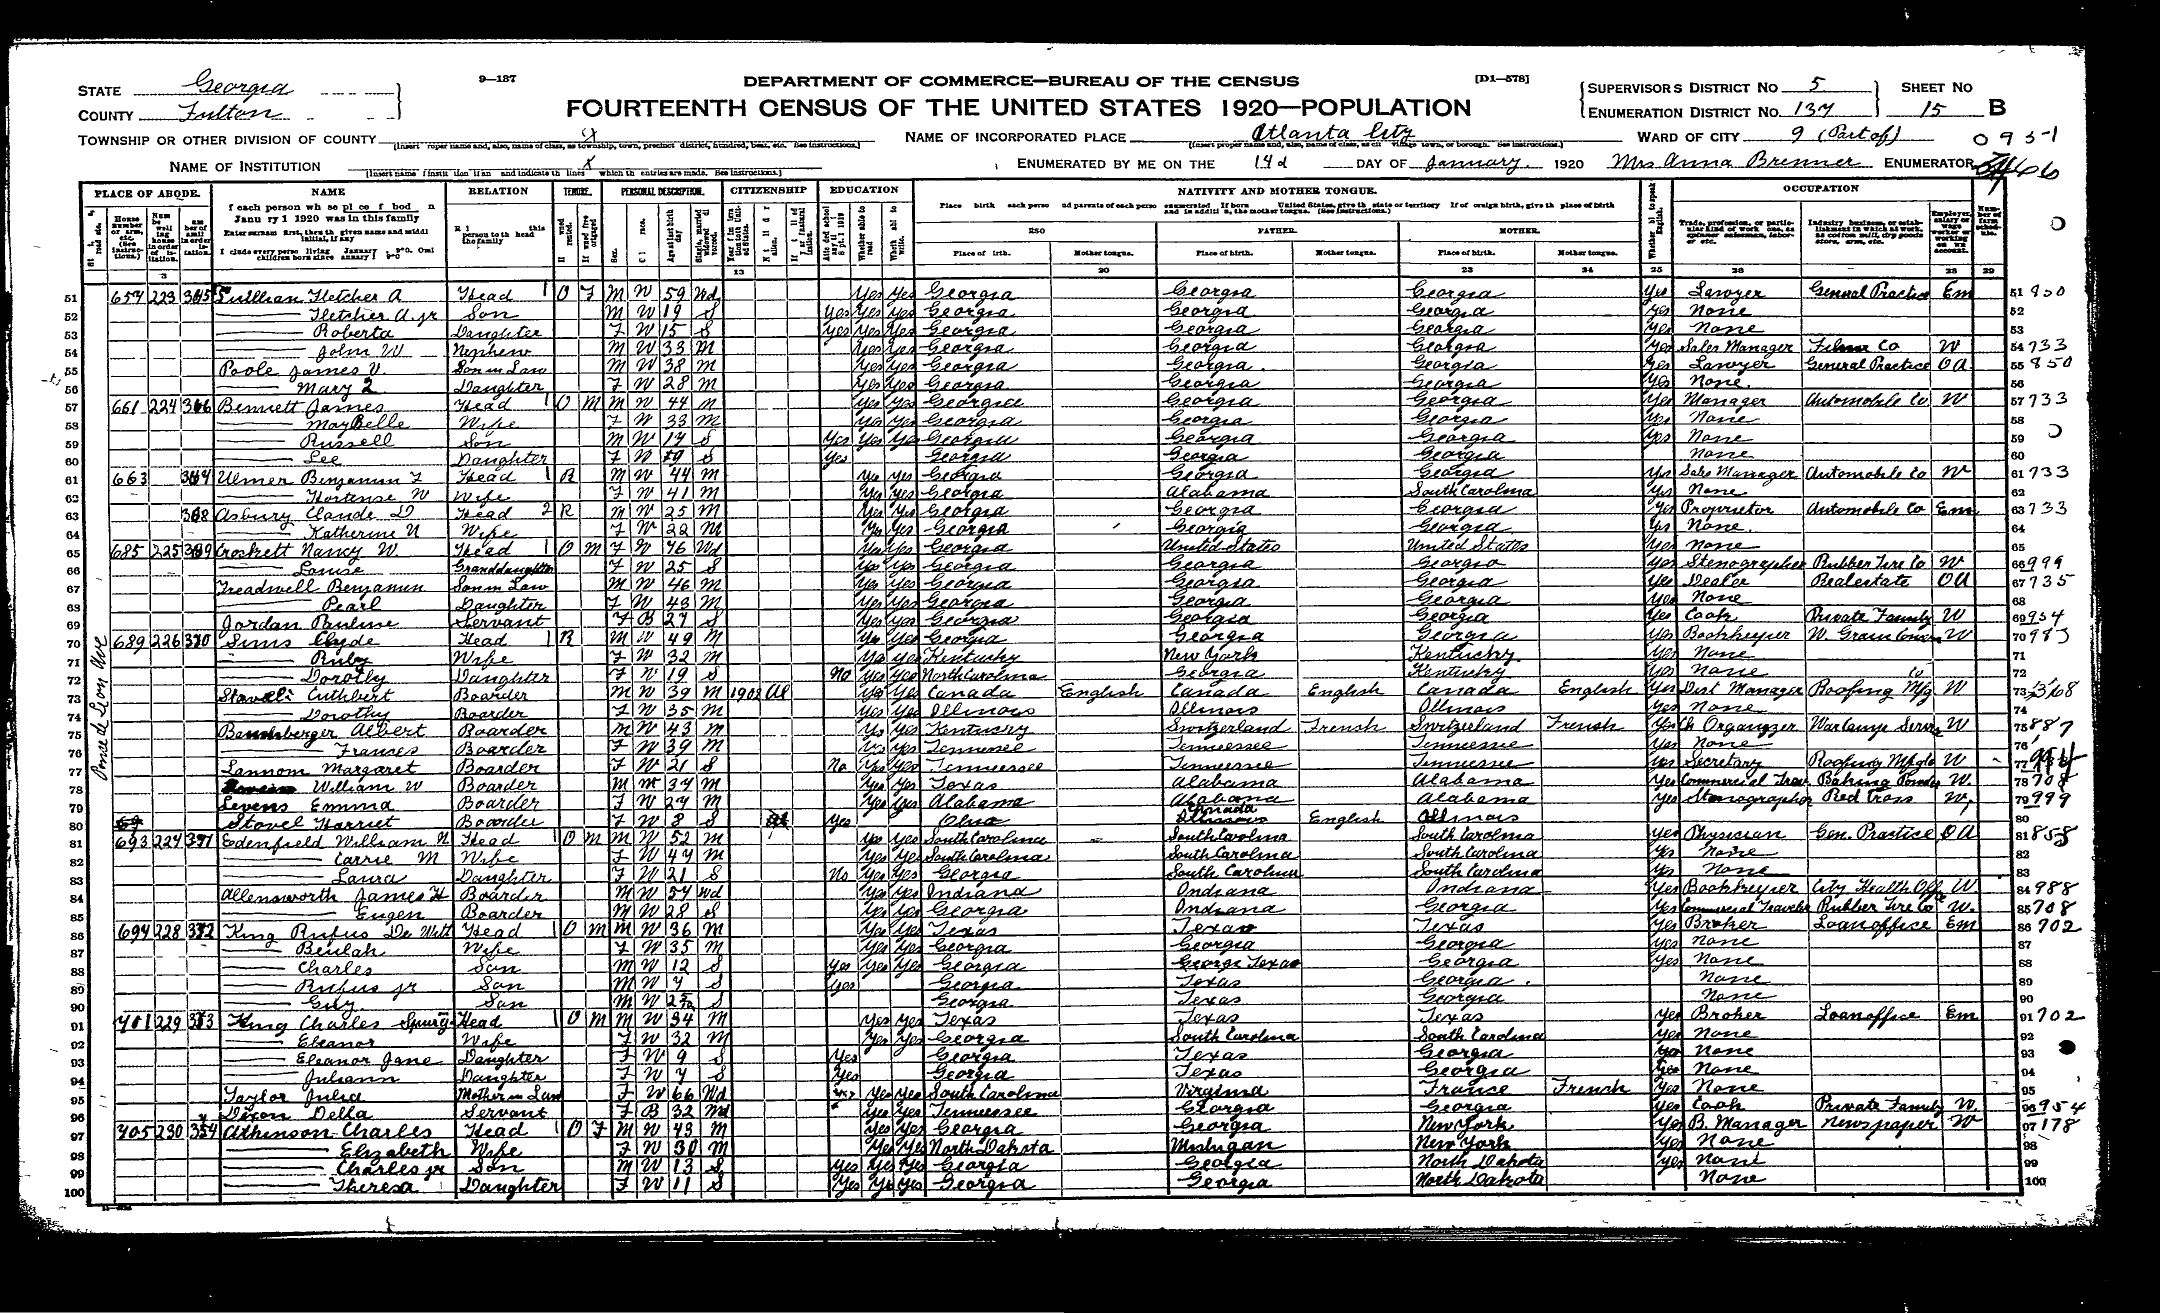 9—137
DEPARTMENT OF COMMERCE—BUREAU OF THE CENSUS
[D1—578]
STATE Georgia
COUNTY Fulton
FOURTEENTH CENSUS OF THE UNITED STATES 1920—POPULATION
SUPERVISORS DISTRICT NO 5 SHEET NO
ENUMERATION DISTRICT NO. 137 15 B
TOWNSHIP OR OTHER DIVISION OF COUNTY X NAME OF INCORPORATED PLACE Atlanta City WARD OF CITY 9 (Part of) 0951
NAME OF INSTITUTION X ENUMERATED BY ME ON THE 14d DAY OF January. 1920 Mrs Anna Brenner ENUMERATOR
PLACE OF ABODE. NAME RELATION TENURE. PERSONAL DESCRIPTION. CITIZENSHIP EDUCATION NATIVITY AND MOTHER TONGUE. OCCUPATION
FATHER. MOTHER.
Mother tongue. Place of birth. Mother tongue. Place of birth. Mother tongue.
Ponce de Leon Ave
51 657 223 Fletcher A Head 1 O F M W 59 Wd Yes Yes Georgia Georgia Georgia Yes Lawyer General Practice Em 51 850
52 Fletcher A. jr Son M W 19 S Yes Yes Yes Georgia Georgia Georgia Yes None 52
53 Roberta Daughter F W 15 S Yes Yes Yes Georgia Georgia Georgia Yes None 53
54 John W Nephew M W 33 M Yes Yes Georgia Georgia Georgia Yes Sales Manager Co W 54 733
55 Poole James V Son in Law M W 38 M Yes Yes Georgia Georgia Georgia Yes Lawyer General Practice OA 55 850
56 Mary Daughter F W 28 M Yes Yes Georgia Georgia Georgia Yes None. 56
57 661 224 366 Bennett James Head 1 O M M W 44 M Yes Yes Georgia Georgia Georgia Yes Manager Automobile Co W 57 733
58 MayBelle Wife F W 33 M Yes Yes Georgia Georgia Georgia Yes None 58
59 Russell Son M W 14 S Yes Yes Yes Georgia Georgia Georgia Yes None 59
60 Lee Daughter F W S Yes Georgia Georgia Georgia None 60
61 663 Ulmer Benjamin F Head 1 R M W 44 M Yes Yes Georgia Georgia Georgia Yes Sales Manager Automobile Co W 61 733
62 Hortense W Wife F W 41 M Yes Yes Georgia Alabama South Carolina Yes None 62
63 368 Asbury Claude D Head 2 R M W 25 M Yes Yes Georgia Georgia Georgia Yes Proprietor Automobile Co Em 63 733
64 Katherine Wife F W 22 M Yes Yes Georgia Georgia Georgia Yes None. 64
65 685 225 369 Crockett Nancy W. Head 1 O M F W 76 Wd Yes Yes Georgia United States United States Yes None 65
66 Louise Granddaughter F W 25 S Yes Yes Georgia Georgia Georgia Yes Stenographer Rubber Tire Co W 66 999
67 Treadwell Benjamin Son in Law M W 46 M Yes Yes Georgia Georgia Georgia Yes Dealer Realestate OA 67 735
68 Pearl Daughter F W 43 M Yes Yes Georgia Georgia Georgia Yes None 68
69 Jordan Pauline Servant F B 27 S Yes Yes Georgia Georgia Georgia Yes Cook Private Family W 69 954
70 689 226 370 Sims Clyde Head 1 R M W 49 M Yes Yes Georgia Georgia Georgia Yes Bookkeeper W. Grain W 70 983
71 Ruby Wife F W 32 M Yes Yes Kentucky New York Kentucky Yes None 71
72 Dorothy Daughter F W 19 S No Yes Yes North Carolina Georgia Kentucky Yes None 72
73 Cuthbert Boarder M W 39 M 1908 Al Yes Yes Canada English Canada English Canada English Yes Dist Manager Roofing Mfg Co W 73
74 Dorothy Boarder F W 35 M Yes Yes Illinois Illinois Illinois Yes None 74
75 Albert Boarder M W 43 M Yes Yes Kentucky Switzerland French Switzerland French Yes Ch Organizer W 75 887
76 Frances Boarder F W 39 M Yes Yes Tennessee Tennessee Tennessee Yes None 76
77 Lannom Margaret Boarder F W 21 S No Yes Yes Tennessee Tennessee Tennessee Yes Secretary Roofing Mfg Co W 77
78 William W Boarder M W 34 M Yes Yes Texas Alabama Alabama Yes Commercial Trav Baking Powder W. 78 708
79 Levens Emma Boarder F W 27 M Yes Yes Alabama Alabama Alabama Yes Stenographer Red Cross W 79 999
80 Stovel Harriet Boarder F W 8 S Yes Ohio Canada English Illinois 80
81 693 227 371 Edenfield William N Head 1 O M M W 52 M Yes Yes South Carolina South Carolina South Carolina Yes Physician Gen. Practice OA 81 858
82 Carrie M Wife F W 47 M Yes Yes South Carolina South Carolina South Carolina Yes None 82
83 Laura Daughter F W 21 S No Yes Yes Georgia South Carolina South Carolina Yes None 83
84 Allensworth James H Boarder M W 54 Wd Yes Yes Indiana Indiana Indiana Yes Bookkeeper City Health Office W. 84 988
85 Eugen Boarder M W 28 S Yes Yes Georgia Indiana Georgia Yes Commercial Traveler Rubber Tire Co W. 85 708
86 694 228 372 King Rufus De Witt Head 1 O M M W 36 M Yes Yes Texas Texas Texas Yes Broker Loanoffice Em 86 702
87 Beulah Wife F W 35 M Yes Yes Georgia Georgia Georgia Yes None 87
88 Charles Son M W 12 S Yes Yes Yes Georgia Texas Georgia Yes None 88
89 Rufus jr Son M W 7 S Yes Georgia Texas Georgia None 89
90 Guy Son M W S Georgia Texas Georgia None 90
91 701 229 373 King Charles Head 1 O M M W 34 M Yes Yes Texas Texas Texas Yes Broker Loanoffice Em 91 702
92 Eleanor Wife F W 32 M Yes Yes Georgia South Carolina South Carolina Yes None 92
93 Eleanor Jane Daughter F W 9 S Yes Georgia Texas Georgia Yes None 93
94 Juliann Daughter F W 7 S Yes Georgia Texas Georgia Yes None 94
95 Taylor Julia Mother in Law F W 66 Wd Yes Yes South Carolina Virginia France French Yes None 95
96 Dixon Della Servant F B 32 Yes Yes Tennessee Georgia Georgia Yes Cook Private Family W. 96 954
97 705 230 Atkinson Charles Head 1 O F M W 43 M Yes Yes Georgia Georgia New York Yes B. Manager Newspaper W 97 178
98 Elizabeth Wife F W 30 M Yes Yes North Dakota Michigan New York Yes None 98
99 Charles jr Son M W 13 S Yes Yes Yes Georgia Georgia North Dakota Yes None 99
100 Theresa Daughter F W 11 S Yes Yes Yes Georgia Georgia North Dakota None 100